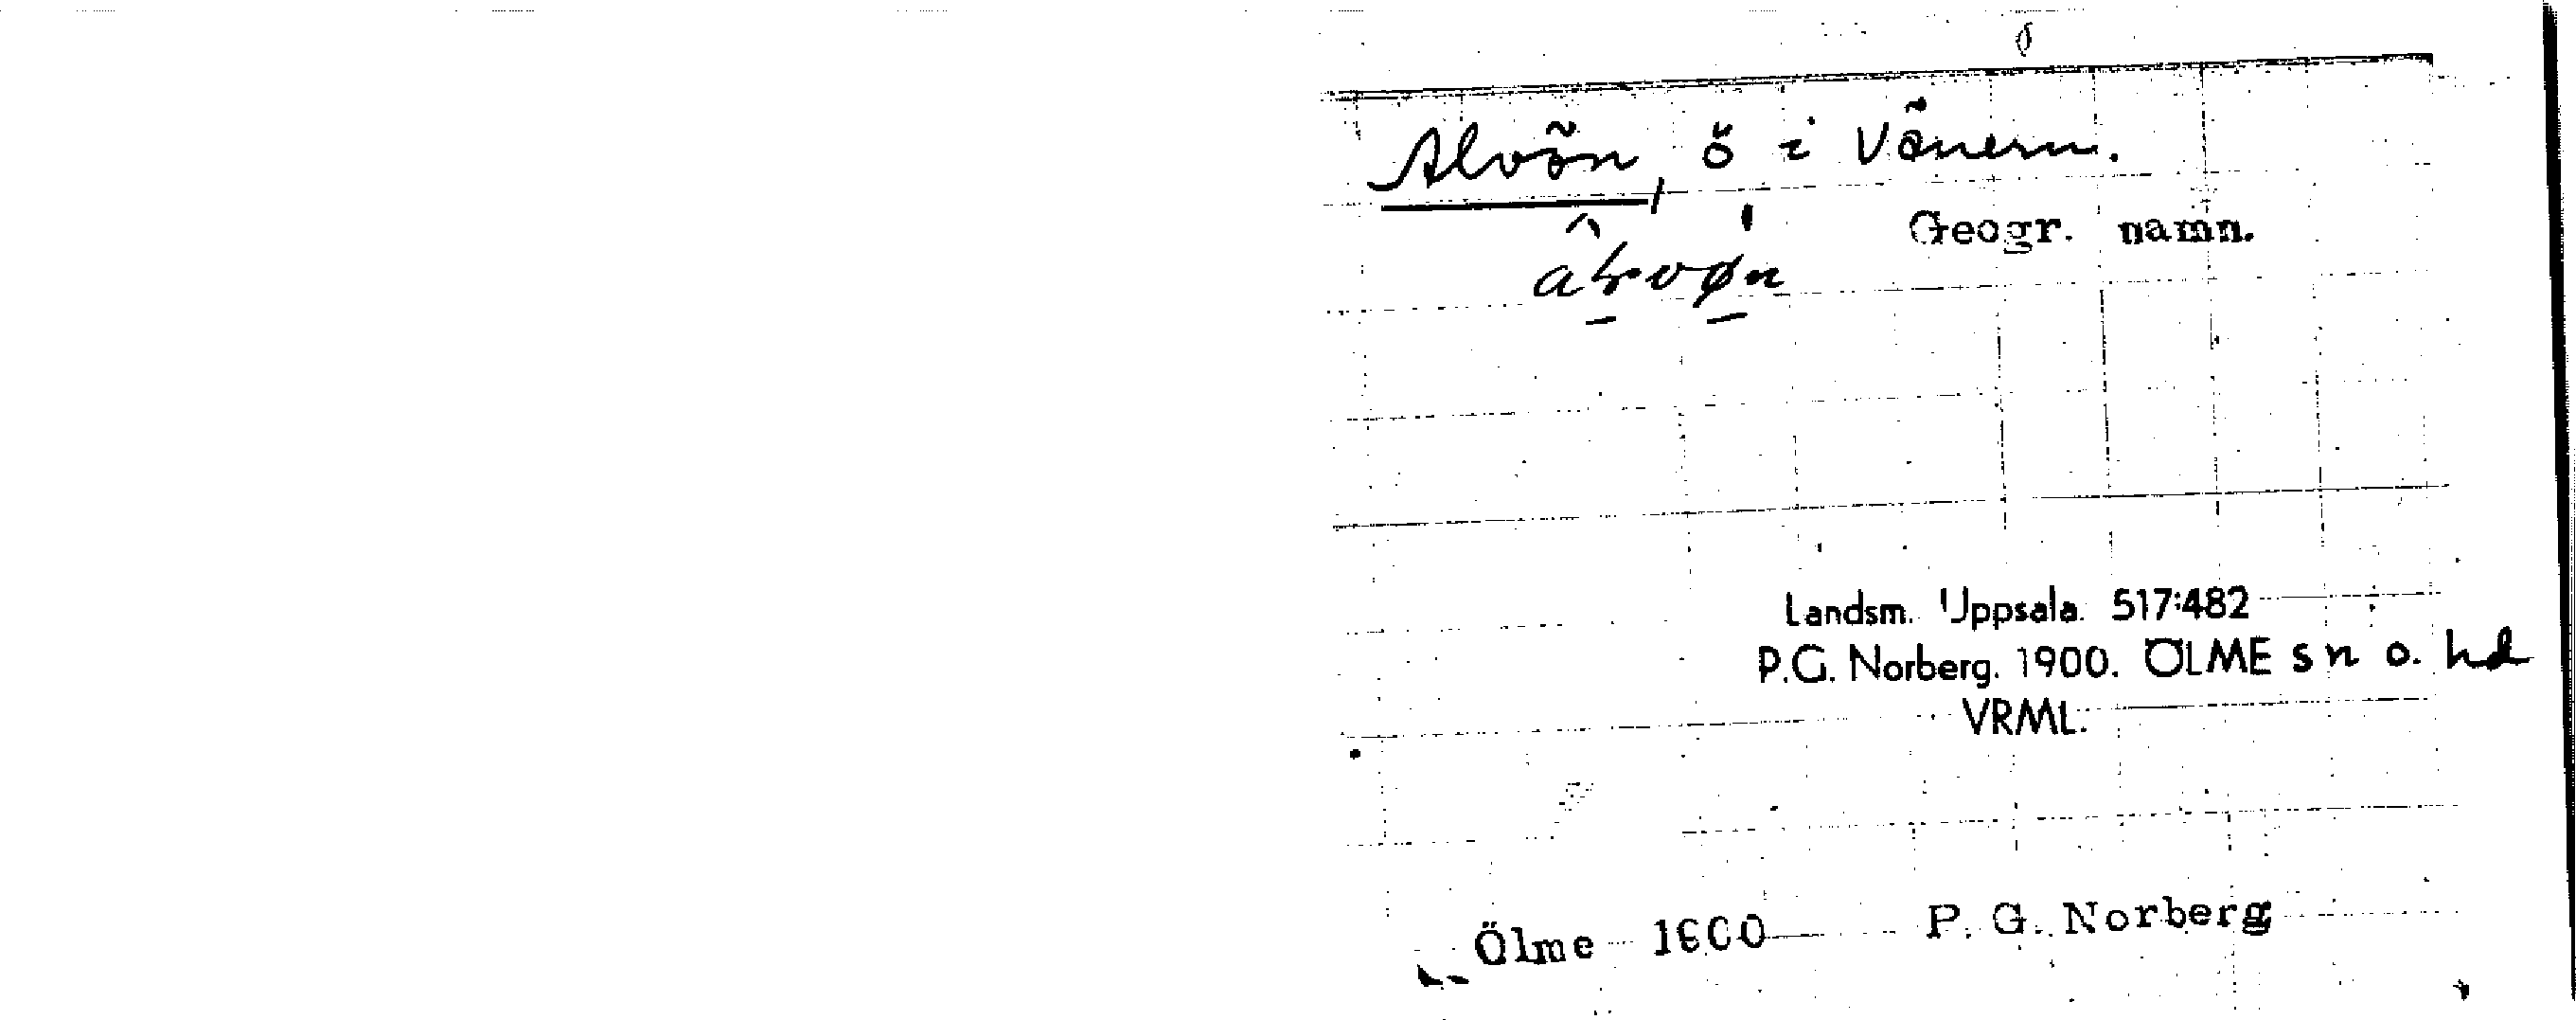 Alvön, ö i Vänern.
Geogr. namn.
Landsm. Uppsala. 517:482
P.G. Norberg. 1900. ÖLME sn o. hd
VRML.
Ölme 1900 P. G. Norberg